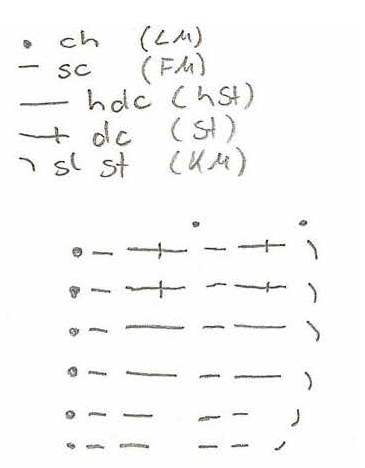 • ch (LM)
– sc (FM)
— hdc (hSt)
—+ dc (St)
⌝ sl st (KM)